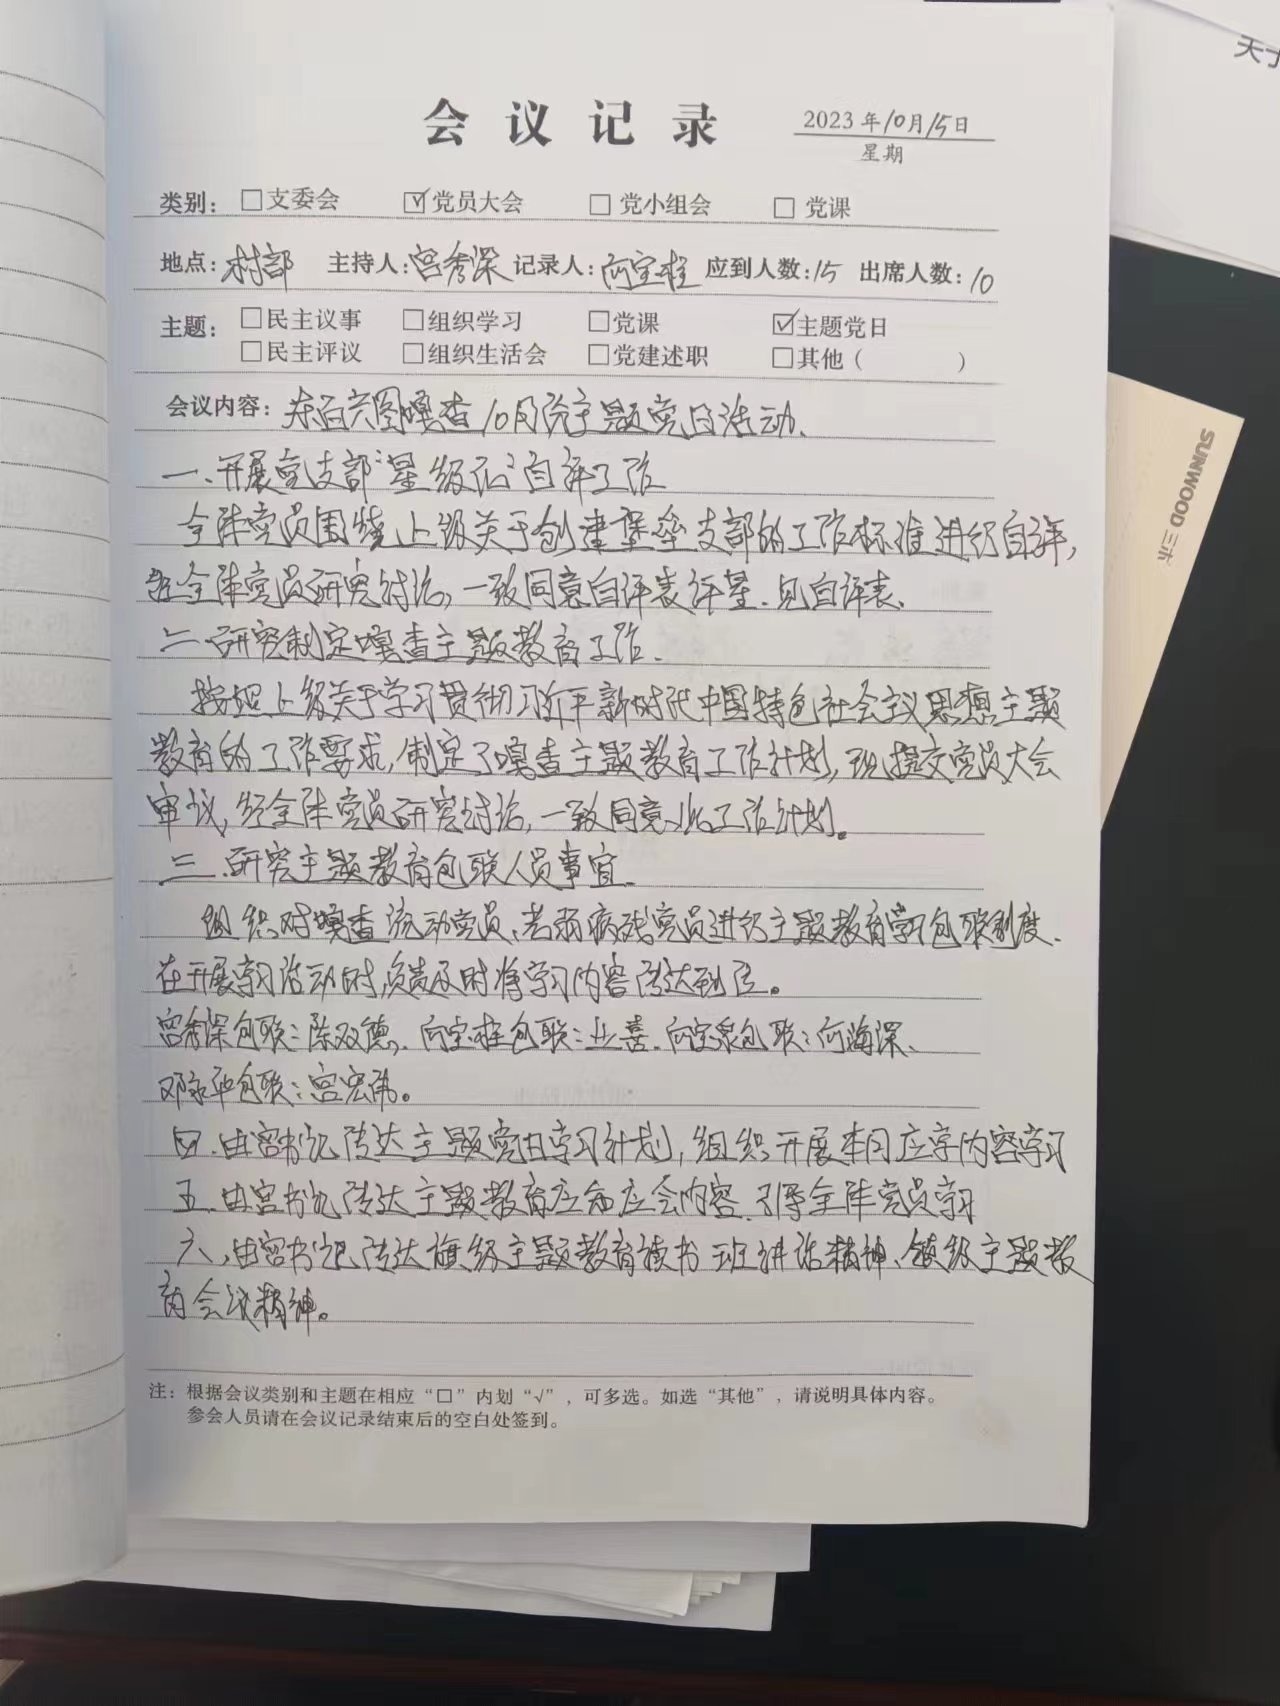 会议记录
2023年10月15日
星期
类别: □支委会 ☑党员大会 □党小组会 □党课
地点: 村部 主持人: 宫秀深 记录人: 向宝柱 应到人数: 15 出席人数: 10
主题: □民主议事 □组织学习 □党课 ☑主题党日
□民主评议 □组织生活会 □党建述职 □其他( )
会议内容: 东百兴图嘎查10月份主题党日活动、
一、开展党支部“星级化”自评工作
全体党员围绕上级关于创建堡垒支部的工作标准进行自评,
经全体党员研究讨论, 一致同意自评表评星. 见自评表、
二、研究制定嘎查主题教育工作、
按照上级关于学习贯彻习近平新时代中国特色社会主义思想主题
教育的工作要求, 制定了嘎查主题教育工作计划, 现提交党员大会
审议, 经全体党员研究讨论, 一致同意此工作计划。
三、研究主题教育包联人员事宜、
组织对嘎查流动党员、老弱病残党员进行主题教育学习包联制度、
在开展学习活动时, 负责及时将学习内容传达到位。
宫秀深包联: 陈双德, 向宝柱包联: 业喜. 向宝泉包联: 何海深、
邓永华包联: 宫宏伟。
四、由宫书记传达主题党日学习计划, 组织开展本月应学内容学习
五、由宫书记传达主题教育应知应会内容、引导全体党员学习
六、由宫书记传达旗级主题教育读书班讲话精神、镇级主题教
育会议精神。
注: 根据会议类别和主题在相应“□”内划“√”, 可多选。如选“其他”, 请说明具体内容。
参会人员请在会议记录结束后的空白处签到。
SUNWOOD 三木